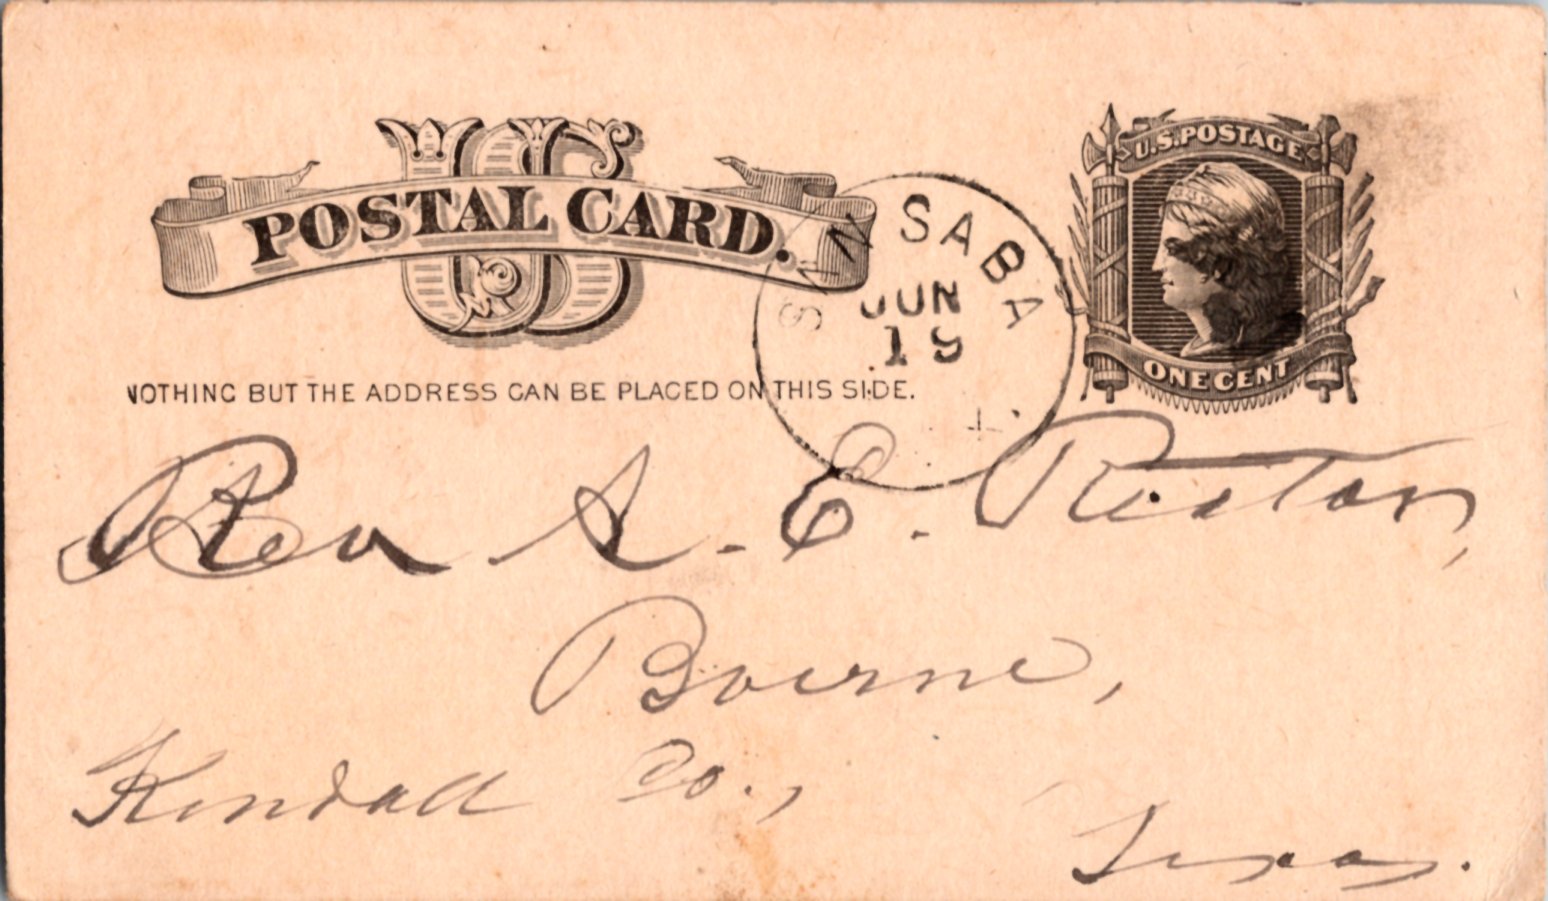 US
POSTAL CARD.
U.S. POSTAGE
ONE CENT
SAN SABA
JUN
19
NOTHING BUT THE ADDRESS CAN BE PLACED ON THIS SIDE.
Rev A. E.
Boerne,
Kendall Co.,
Texas.